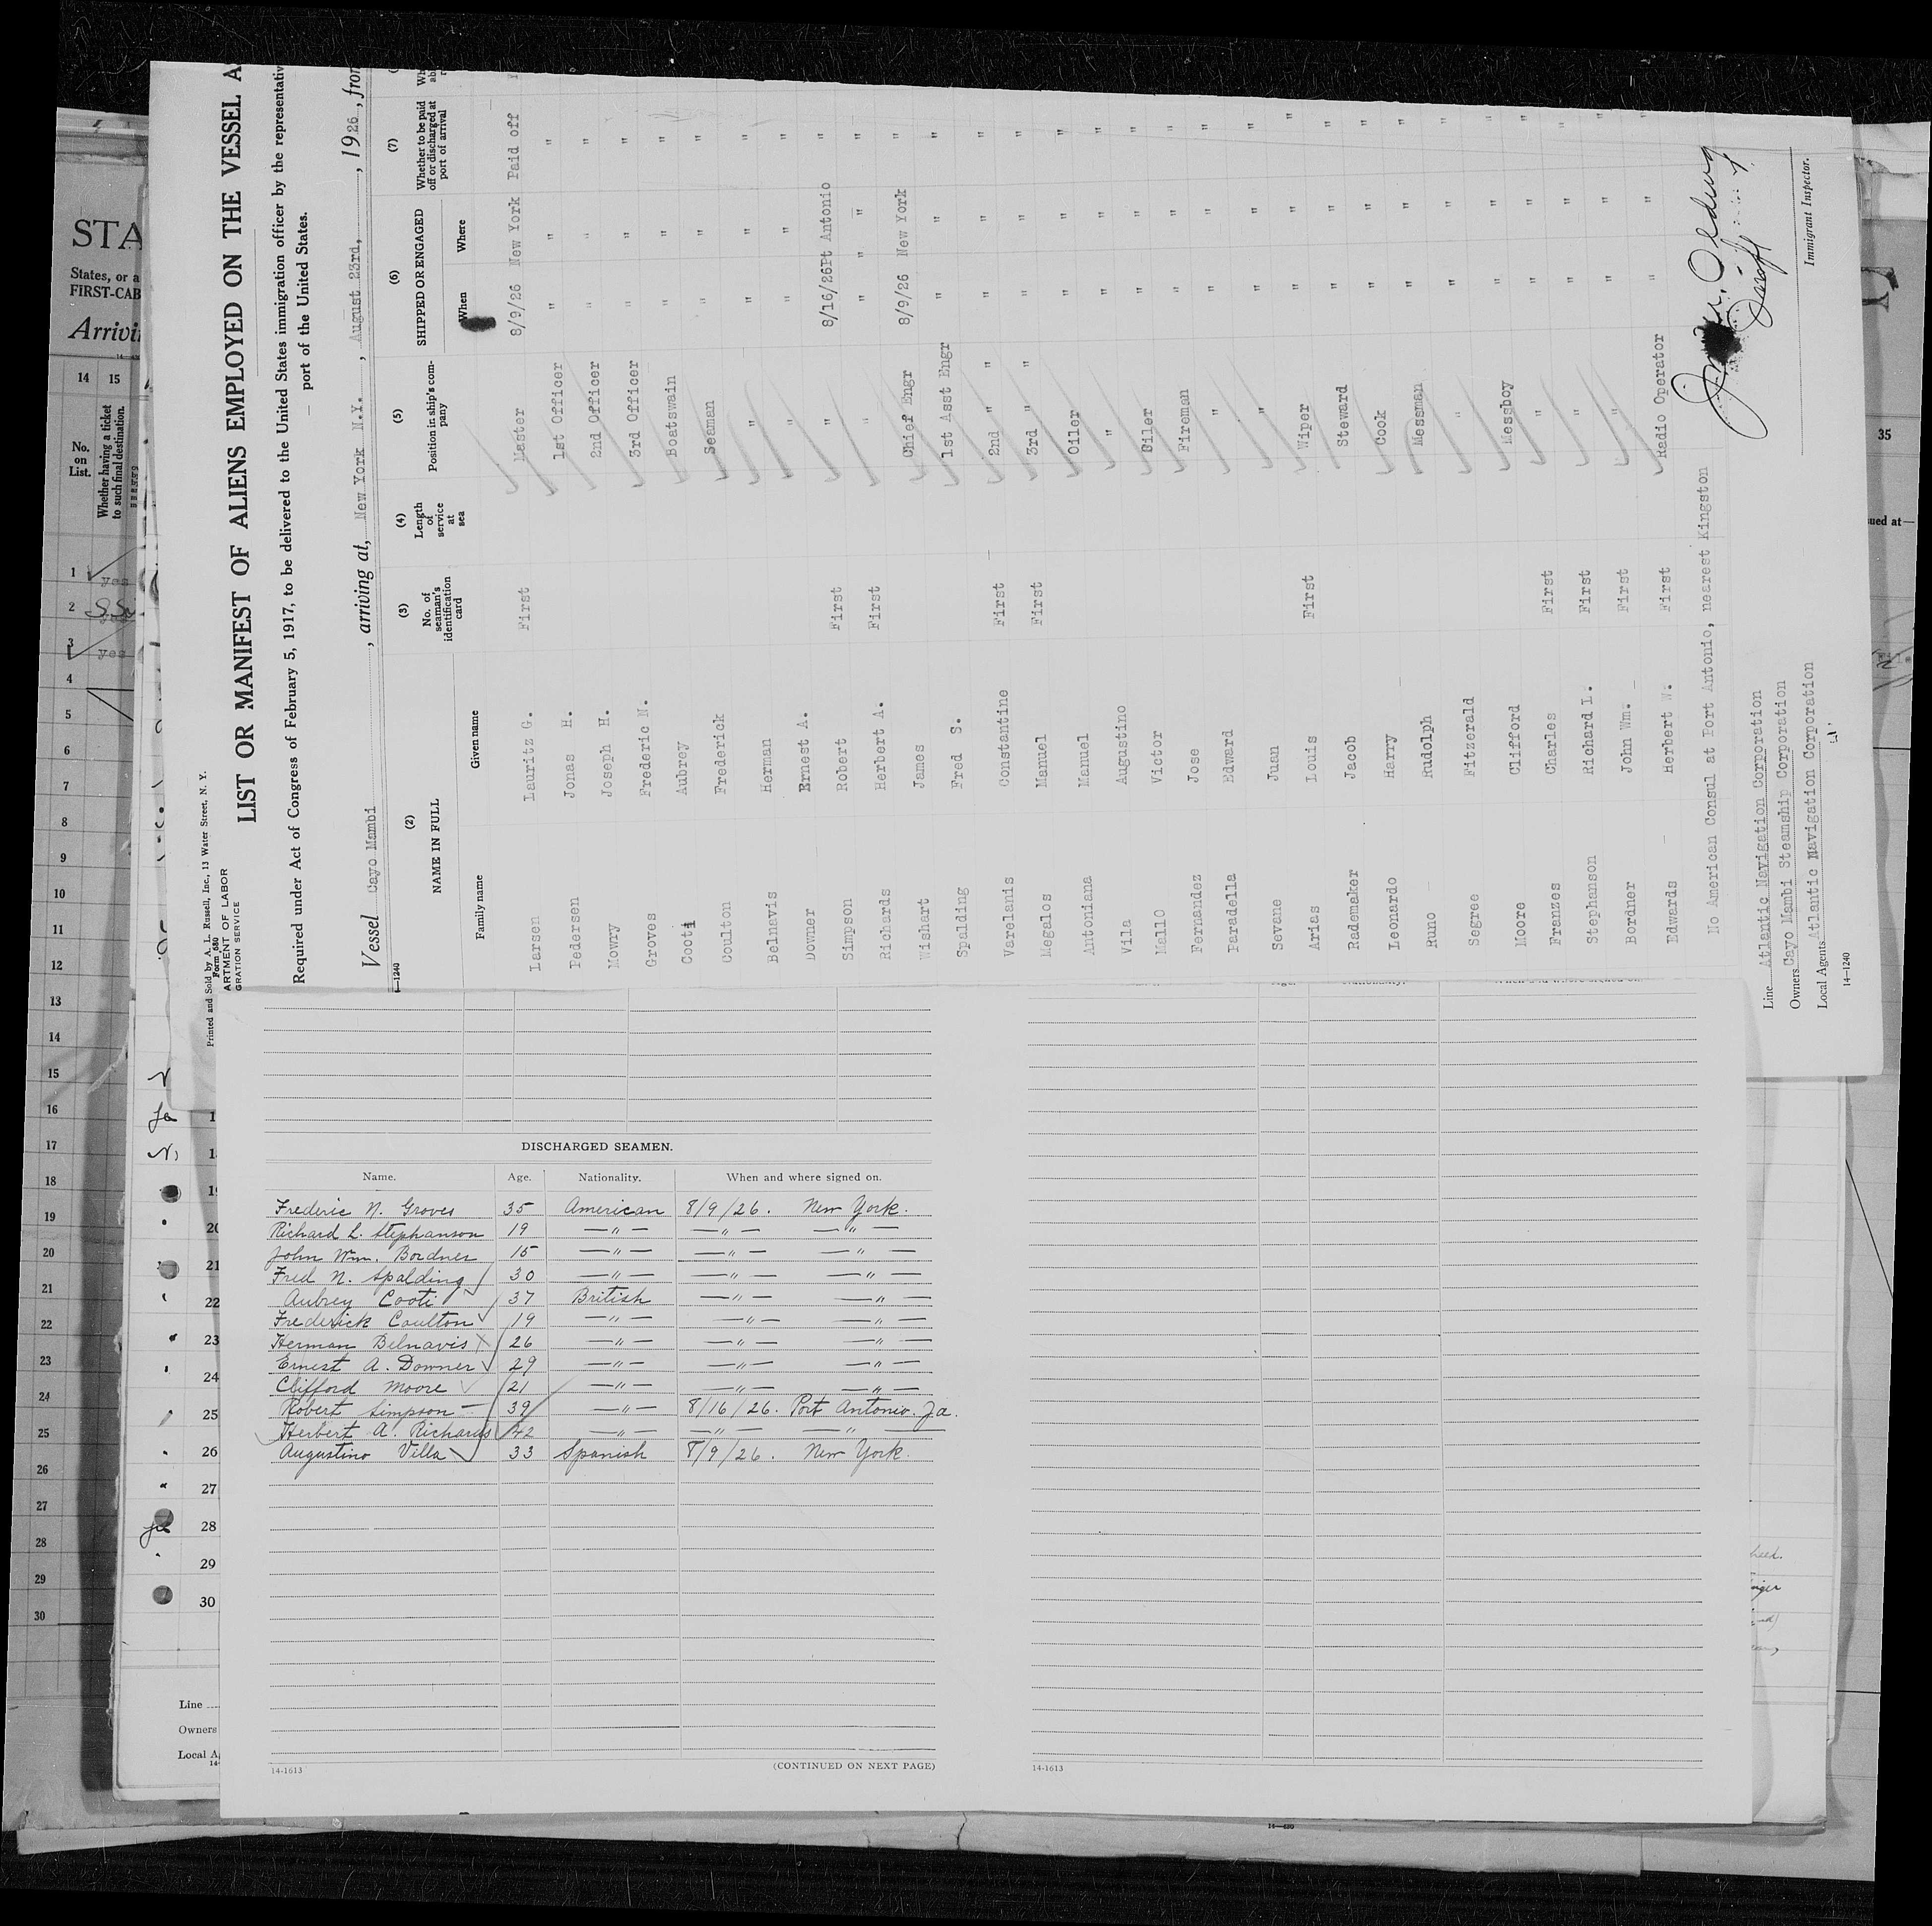 Printed and Sold by A. L. Russell, Inc., 13 Water Street, N. Y.
Form 680
ARTMENT OF LABOR
GRATION SERVICE
LIST OR MANIFEST OF ALIENS EMPLOYED ON THE VESSEL A
Required under Act of Congress of February 5, 1917, to be delivered to the United States immigration officer by the representativ
port of the United States.
Vessel Cayo Mambi, arriving at, New York N.Y., August 23rd, , 1926, from
14—1240
(2) NAME IN FULL (3) No. of seaman's identification card (4) Length of service at sea (5) Position in ship's company (6) SHIPPED OR ENGAGED (7) Whether to be paid off or discharged at port of arrival
Family name Given name When Where
Larsen Lauritz G. First Master 8/9/26 New York Paid off
Pedersen Jonas H. 1st Officer " " "
Mowry Joseph H. 2nd Officer " " "
Groves Frederic N. 3rd Officer " " "
Cooti Aubrey Boatswain " " "
Coulton Frederick Seaman " " "
Belnavis Herman " " " "
Downer Ernest A. " " " "
Simpson Robert First " 8/16/26 Pt Antonio "
Richards Herbert A. First " " " "
Wichart James Chief Engr 8/9/26 New York "
Spalding Fred S. 1st Asst Engr " " "
Varelanis Constantine First 2nd " " " " "
Megalos Manuel First 3rd " " " " "
Antoniana Manuel Oiler " " "
Vila Augustino " " " "
Mallo Victor Oiler " " "
Fernandez Jose Fireman " " "
Paradella Edward " " " "
Sevane Juan " " " "
Arias Louis First Wiper " " "
Rademaker Jacob Steward " " "
Leonardo Harry Cook " " "
Runo Rudolph Messman " " "
Segree Fitzerald " " " "
Moore Clifford Messboy " " "
Franzes Charles First " " " "
Stephanson Richard L. First " " " "
Bordner John Wm. First " " " "
Edwards Herbert W. First Radio Operator " " "
No American Consul at Port Antonio, nearest Kingston
Line Atlantic Navigation Corporation
Owners Cayo Mambi Steamship Corporation
Local Agents Atlantic Navigation Corporation
14—1240
Immigrant Inspector.
DISCHARGED SEAMEN.
Name. Age. Nationality. When and where signed on.
Frederic N. Groves 35 American 8/9/26. New York.
Richard L. Stephanson 19 —"— —"— —"—
John Wm. Bordner 15 —"— —"— —"—
Fred N. Spalding 30 —"— —"— —"—
Aubrey Cooti 37 British —"— —"—
Frederick Coulton 19 —"— —"— —"—
Herman Belnavis 26 —"— —"— —"—
Ernest A. Downer 29 —"— —"— —"—
Clifford Moore 21 —"— —"— —"—
Robert Simpson 39 —"— 8/16/26. Port Antonio. Ja.
Herbert A. Richards 42 —"— —"— —"—
Augustino Villa 33 Spanish 8/9/26. New York.
14-1613 (CONTINUED ON NEXT PAGE)
14-1613
STA
States, or a
FIRST-CAB
Arrivi
14 15
No. on List.
Whether having a ticket to such final destination.
1 yes
2
3 yes
4
5
6
7
8
9
10
11
12
13
14
15
16
17
18
19
20
21
22
23
24
25
26
27
28
29
30
20
21
22
23
24
25
26
27
28
29
30
Line
Owners
Local A
35
sued at—